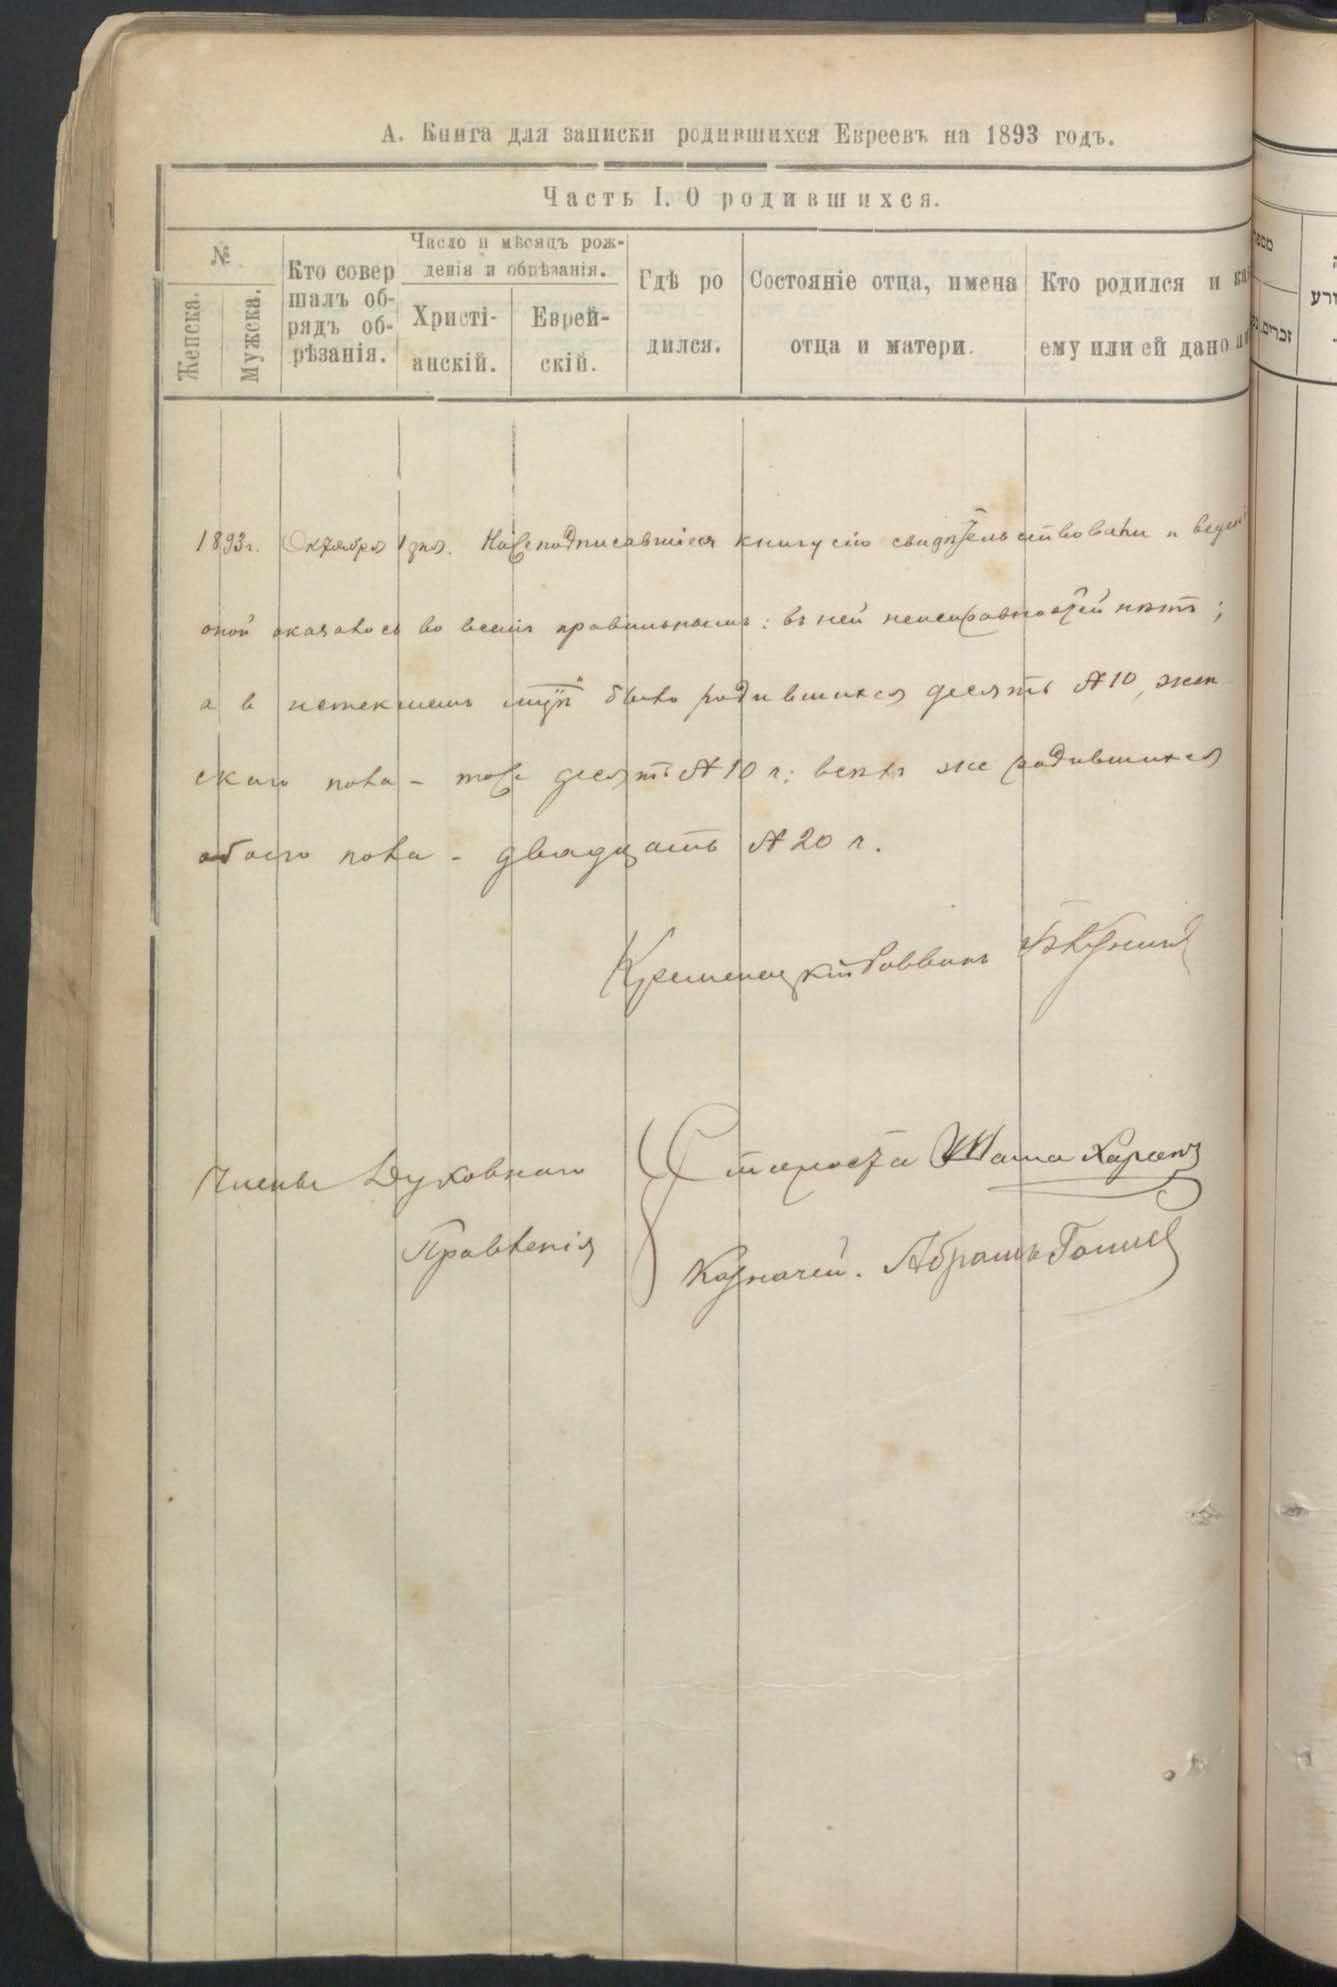 А. Книга для записки родившихся Евреевъ на 1893 годъ.
Часть I. О родившихся.
№
Женска.
Мужска.
Кто совер
шалъ об-
рядъ об-
рѣзанія.
Число и мѣсяцъ рож-
денія и обрѣзанія.
Христі-
анскій.
Еврей-
скій.
Гдѣ ро
дился.
Состояніе отца, имена
отца и матери.
Кто родился и
ему или ей дано
1893 г. Октября 1 дня. Нижеподписавшіеся книгу сію свидѣтельствовали и
оной оказалось во всемъ правильнымъ: въ ней неисправностей нѣтъ;
а въ истекшемъ было родившихся десять № 10, жен
скаго пола - тоже десять № 10 г.; всѣхъ же родившихся
обоего пола - двадцать № 20 г.
Кременецкій Раввинъ
Члены Духовнаго
Правленія
Староста
Казначей. Абрамъ
זכרים